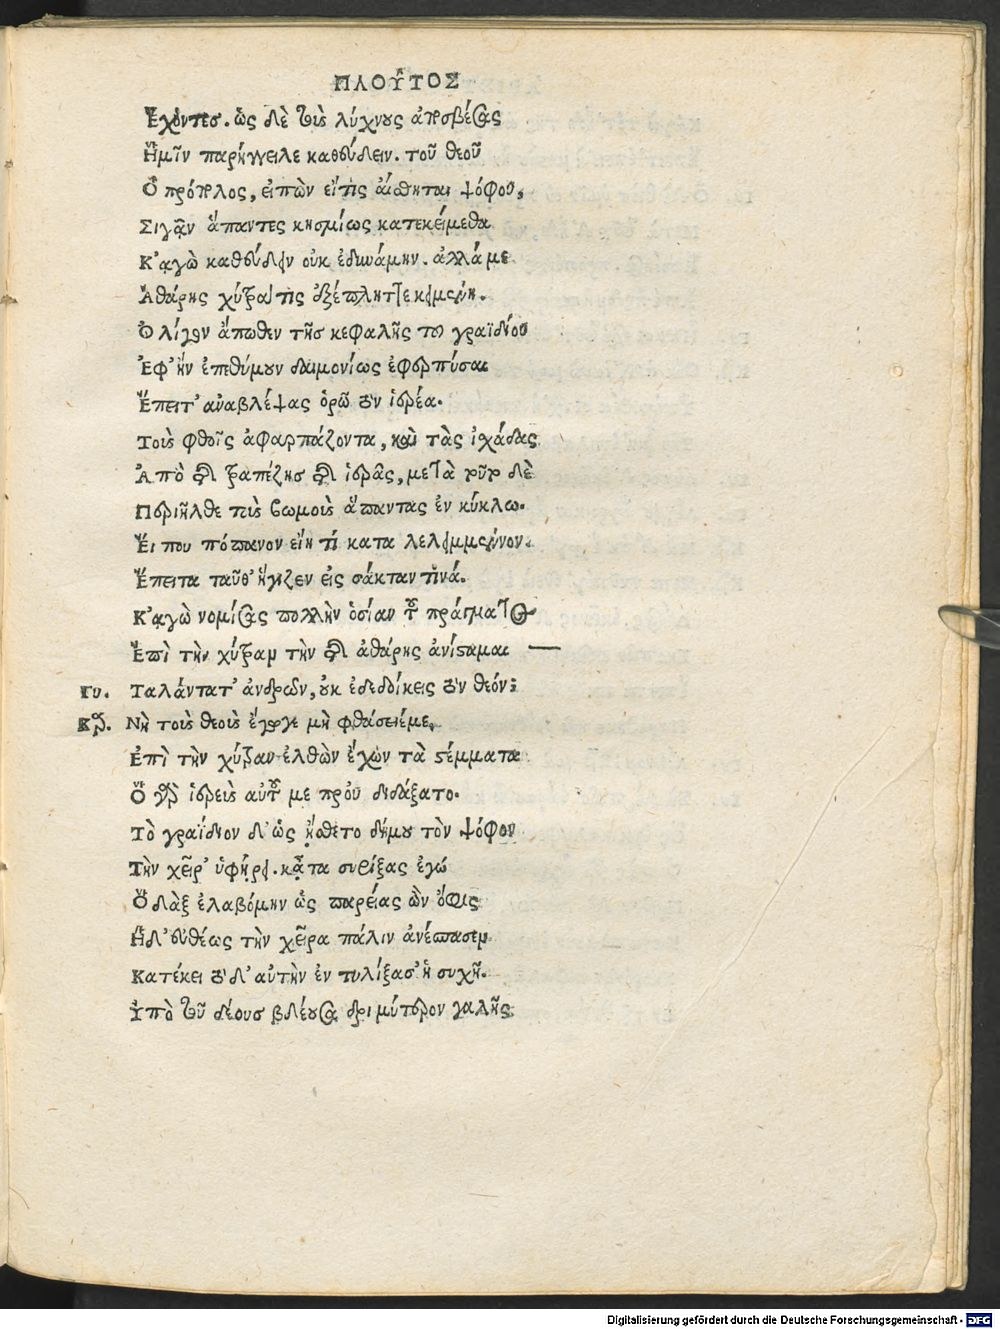 ΠΛΟΥ͂ΤΟΣ
Ἔχοντεσ. ὡς δὲ τοὺς λύχνους ἀποσβέσας
Ἡμῖν παρήγγειλε καθεύδειν. τοῦ θεοῦ
Ὁ πρόπολος, εἰπὼν εἴτις αἴσθηται ψόφου,
Σιγᾶν ἅπαντες κοσμίως κατεκείμεθα
Κ'αγὼ καθεύδειν οὐκ ἐδυνάμην. ἀλλά με
Ἀθάρης χύτρα τις ἐξέπληττε κειμένη.
Ὀλίγον ἄπωθεν τῆσ κεφαλῆς του γραϊδίου
Ἐφ' ἣν ἐπεθύμουν δαιμονίως ἐφερπύσαι
Ἔπειτ' αναβλέψας ὁρῶ τὸν ἱερέα.
Τοὺς φθοῖς ἀφαρπάζοντα, καὶ τὰς ἰχάδας
Ἀπὸ τῆς τραπέζησ τῆς ἱερᾶς, μετὰ τοῦτο δὲ
Περιῆλθε τοὺς βωμοὺς ἅπαντας ἐν κύκλω.
Ἔι που πόπανον εἴη τί κατα λελειμμένον.
Ἔπειτα ταῦθ' ἥγιζεν εἰς σάκταν τινά.
Κ'αγὼ νομίσας πολλὴν ὁσίαν τοῦ πράγματος
Ἐπὶ τὴν χύτραν τὴν τῆς ἀθάρης ἀνίσταμαι —
Γυ. Ταλάντατ' ἀνδρῶν, ουκ ἐδεδοίκεις τὸν θεόν;
Κρ. Νὴ τοὺς θεοὺς ἔγωγε μὴ φθάσειέ με,
Ἐπὶ τὴν χύτραν ἐλθὼν ἔχων τὰ στέμματα
Ὁ γὰρ ἱερεὺς αὐτοῦ με πρὀυ διδάξατο.
Τὸ γραΐδιον δ' ὡς ᾔσθετο δήμου τὸν ψόφον
Τὴν χεῖρ' ὑφήρει. κᾆτα συρίξας ἐγώ
Ὀδὰξ ἐλαβόμην ὡς παρείας ὢν ὄφις
Ἡ δ' ευθέως τὴν χεῖρα πάλιν ἀνέσπασεν
Κατέκειτο δ' αὑτὴν ἐν τυλίξασ' ἡ συχῆ.
Ὑπὸ τοῦ δέουσ βδέουσα δριμύτερον γαλῆς.